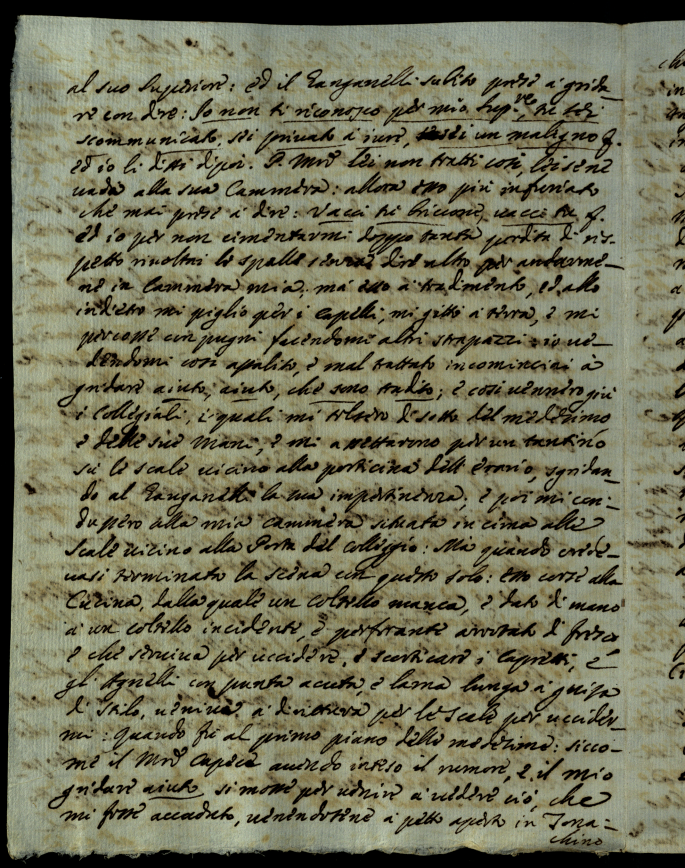 al suo Superiore: ed il Zanganelli subito prese a grida
re con dire: Io non ti riconosco per mio Sup.re, tu sei
scommunicato, sei privato a iure, sei un maligno
ed io li dissi dipoi. P. Mrõ lei non tratti così, lei se ne
vada alla sua Cammera: allora esso più infuriato
che mai prese a dire: vacci tu briccone, vacce tu
ed io per non cimentarmi doppo tanta perdita di ris-
petto rivoltai le spalle senza dire altro per andarme-
ne in Cammera mia, ma esso a tradimento, ed allo
indietro mi piglio per i Capelli, mi gittò a terra, e mi
percosse con pugni facendomi altri strapazzi: io ve-
dendomi così assalito, e mal trattato incominciai à
gridare aiuto, aiuto, che sono tradito; e così vennero più
i Collegiali, i quali mi tolsero di sotto del medesimo
e delle sue Mani, e mi assettarono per un tantino
sù le scale vicino alla porticina dell' erario, sgridan-
do al Zanganelli la sua impertinenza; e poi mi con-
dussero alla mia cammera situata in cima alle
Scale vicino alla Porta del colleggio: Ma quando crede-
vasi terminata la scena con questo solo: esso corse alla
Cucina, dalla quale un coltello manca, e dato di mano
a un coltello incidente, e perforante arrotato di fresco
e che serviva per uccidere, e scorticare i Capretti, e
gli Agnelli con punta acuta, e lama lunga a guisa
di Stilo, veniva a dirittura per le scale per uccider-
mi: Quando fù al primo piano delle medesime: sicco-
me il Mrõ Capece avendo inteso il rumore, e il mio
gridare aiuto si mosse per venire a vedere ciò, che
mi fosse accaduto, venendosene a petto aperto in Tona-
chino